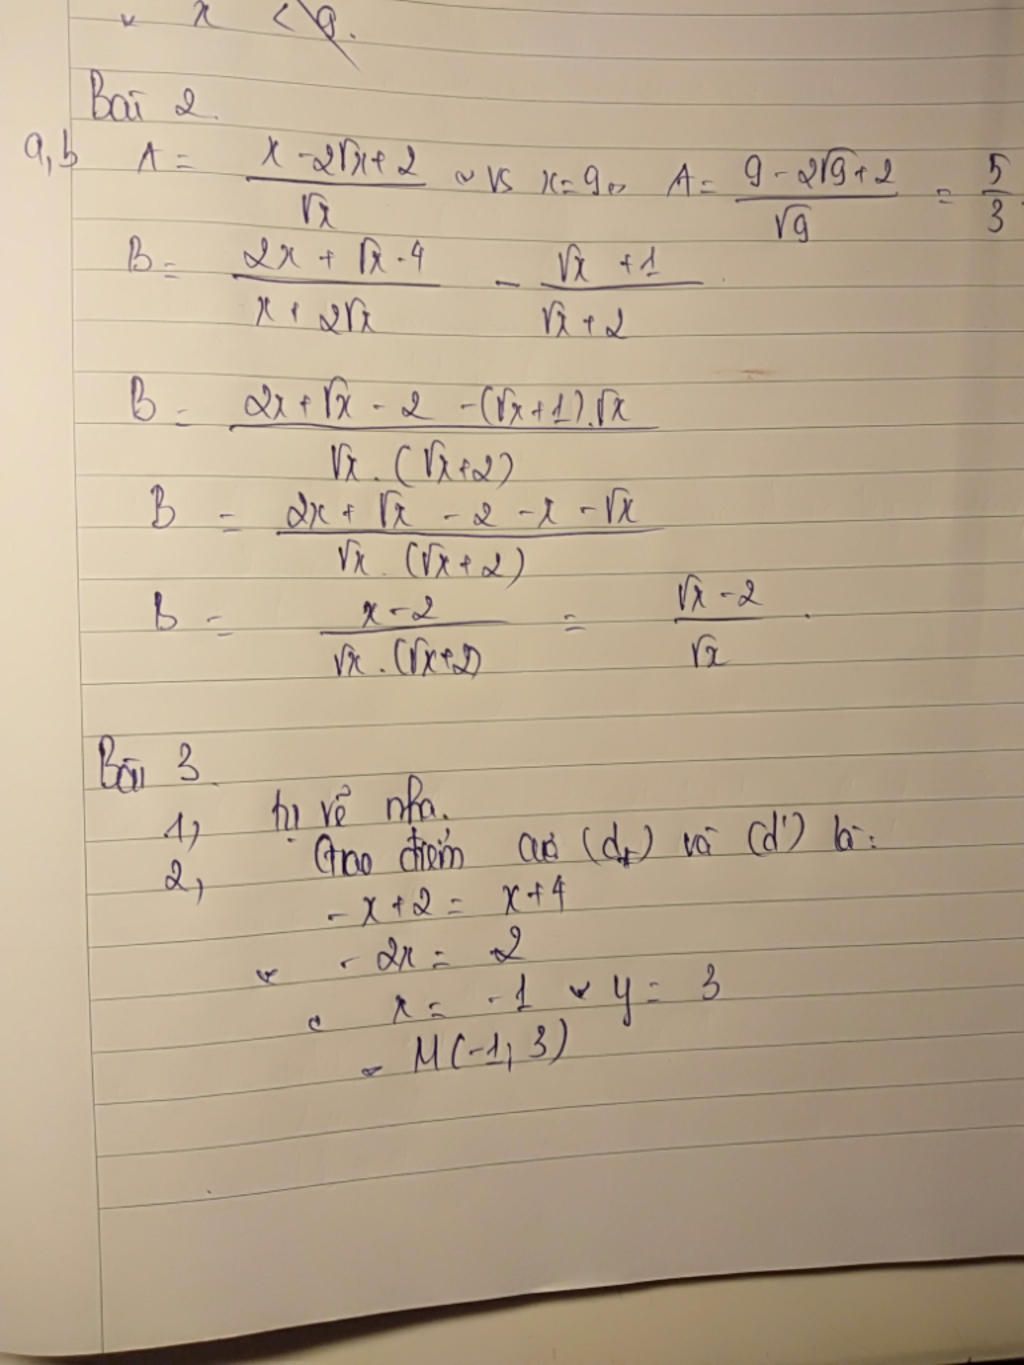 x < 9.
Bài 2.
a, b A = (x - 2√x + 2)/√x vs x = 9 A = (9 - 2√9 + 2)/√9 = 5/3.
B = (2x + √x - 4)/(x + 2√x) - (√x + 1)/(√x + 2).
B = (2x + √x - 2 - (√x + 1).√x)/(√x . (√x + 2))
B = (2x + √x - 2 - x - √x)/(√x . (√x + 2))
B = (x - 2)/(√x . (√x + 2)) = (√x - 2)/√x .
Bài 3.
1, tự vẽ nha.
2, Giao điểm của (d) và (d') là:
- x + 2 = x + 4
- 2x = 2
x = -1 y = 3
M(-1, 3)